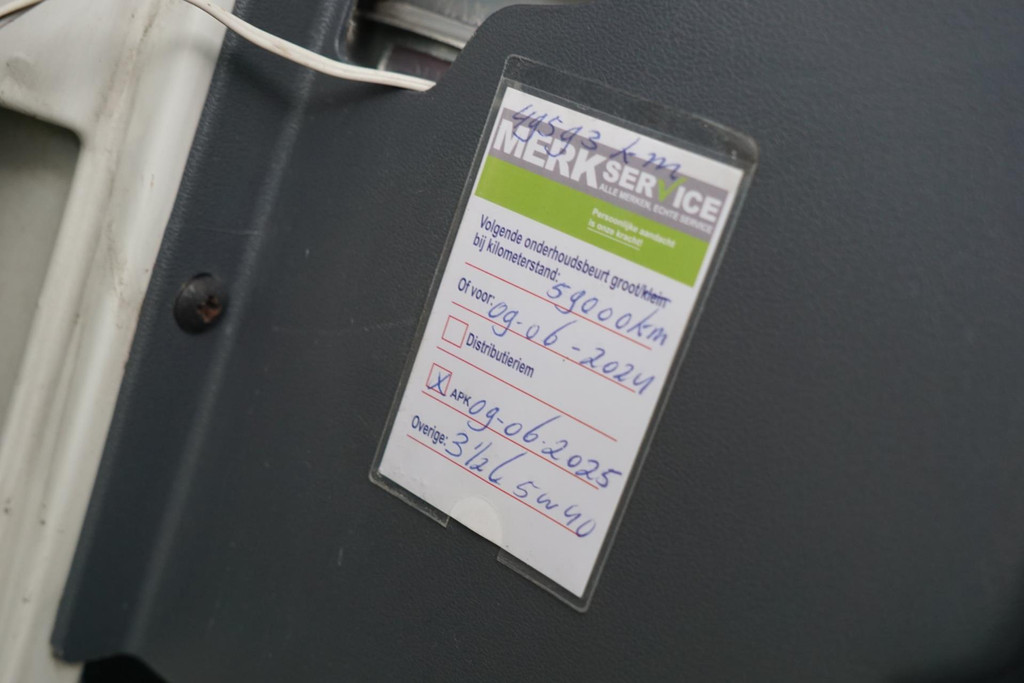 49593 km
MERKSERVICE
ALLE MERKEN, ECHTE SERVICE
Persoonlijke aandacht
is onze kracht!
Volgende onderhoudsbeurt groot/klein
bij kilometerstand: 59000km
Of voor: 09-06-2024
Distributieriem
X APK 09-06-2025
Overige: 3 1/2 L 5w40